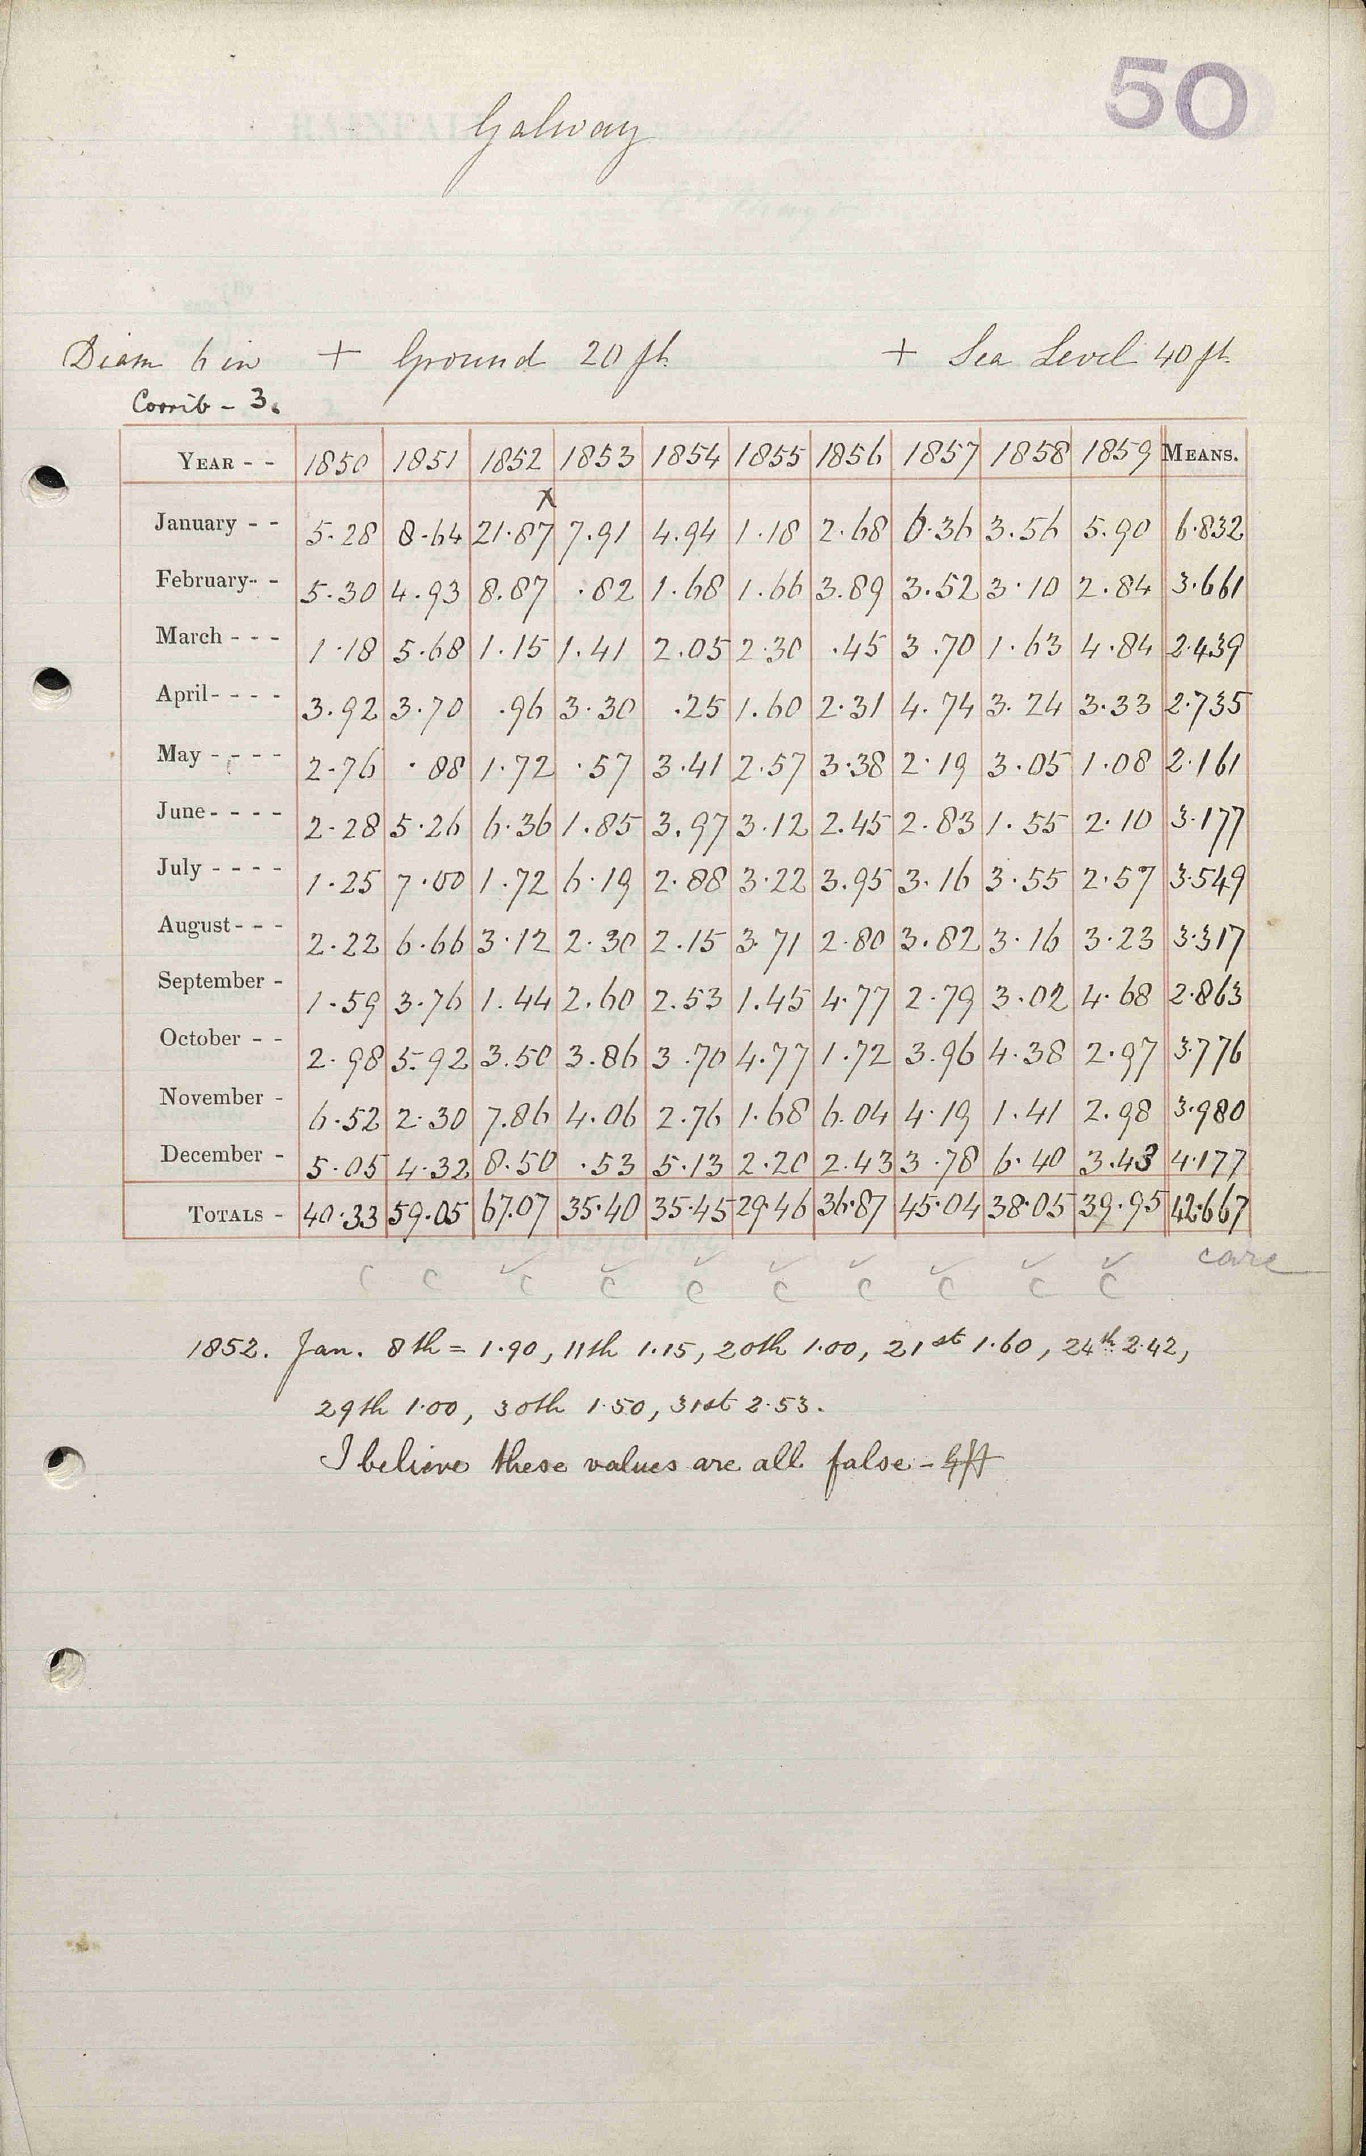 50
Galway
Diam 6 in + Ground 20 ft. + Sea Level 40 ft.
Corrib - 3.
YEAR - - 1850 1851 1852 1853 1854 1855 1856 1857 1858 1859 MEANS.
x
January - - 5.28 8.64 21.87 7.91 4.94 1.18 2.68 6.36 3.56 5.90 6.832
February - - 5.30 4.93 8.87 .82 1.68 1.66 3.89 3.52 3.10 2.84 3.661
March - - - 1.18 5.68 1.15 1.41 2.05 2.30 .45 3.70 1.63 4.84 2.439
April - - - - 3.92 3.70 .96 3.30 .25 1.60 2.31 4.74 3.24 3.33 2.735
May - - - - 2.76 .88 1.72 .57 3.41 2.57 3.38 2.19 3.05 1.08 2.161
June - - - - 2.28 5.26 6.36 1.85 3.97 3.12 2.45 2.83 1.55 2.10 3.177
July - - - - 1.25 7.00 1.72 6.19 2.88 3.22 3.95 3.16 3.55 2.57 3.549
August - - - 2.22 6.66 3.12 2.30 2.15 3.71 2.80 3.82 3.16 3.23 3.317
September - 1.59 3.76 1.44 2.60 2.53 1.45 4.77 2.79 3.02 4.68 2.863
October - - 2.98 5.92 3.50 3.86 3.70 4.77 1.72 3.96 4.38 2.97 3.776
November - 6.52 2.30 7.86 4.06 2.76 1.68 6.04 4.19 1.41 2.98 3.980
December - 5.05 4.32 8.50 .53 5.13 2.20 2.43 3.78 6.40 3.43 4.177
TOTALS - 40.33 59.05 67.07 35.40 35.45 29.46 36.87 45.04 38.05 39.95 42.667
c c ✓c ✓c ✓c ✓c ✓c ✓c ✓c ✓c care
1852. Jan. 8th = 1.90, 11th 1.15, 20th 1.00, 21st 1.60, 24th 2.42,
29th 1.00, 30th 1.50, 31st 2.53.
I believe these values are all false -